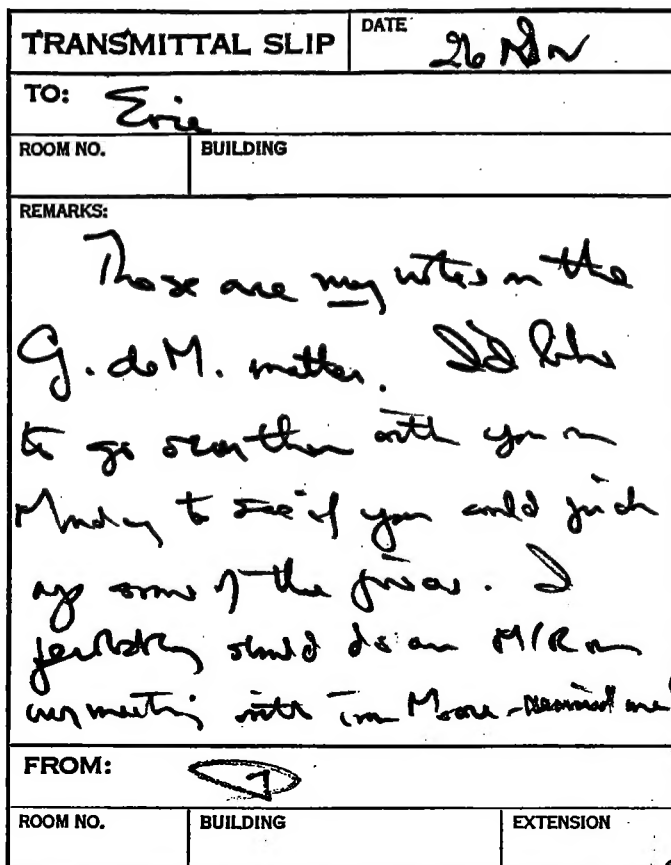 TRANSMITTAL SLIP
DATE
26 Nov
TO: Eric
ROOM NO.
BUILDING
REMARKS:
These are my notes on the
G. de M. matter. I'd like
to go over them with you on
Monday to see if you could pick
up some of the pieces. I
probably should do an M/R on
our meeting with Tom Moore - remind me
FROM:
ROOM NO.
BUILDING
EXTENSION